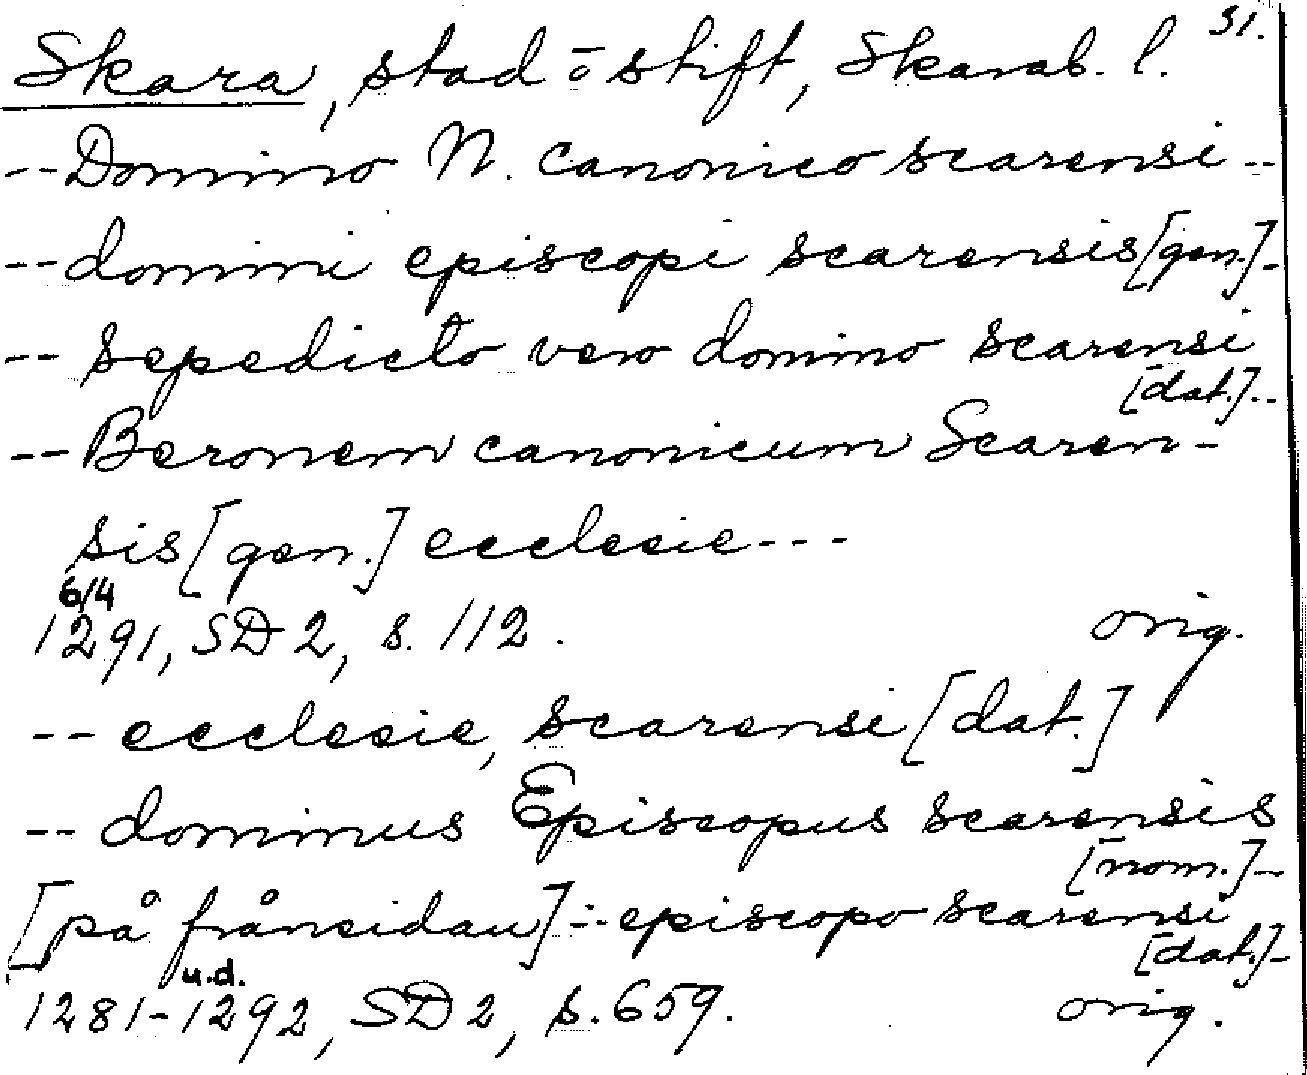 31.
Skara, stad o stift, Skarab. l.
-- Domino N. canonico scarensi --
-- domini episcopi scarensis [gen.] -
-- sepedicto vero domino scarensi
[dat.] --
-- Beronem canonicum Scaren-
sis [gen.] ecclesie ---
6/4
1291, SD 2, s. 112. orig.
-- ecclesie, scarensi [dat.]
-- dominus Episcopus scarensis
[nom.] --
[på frånsidan] -- episcopo scarensi
[dat.] -
u.d.
1281-1292, SD 2, s. 659. orig.